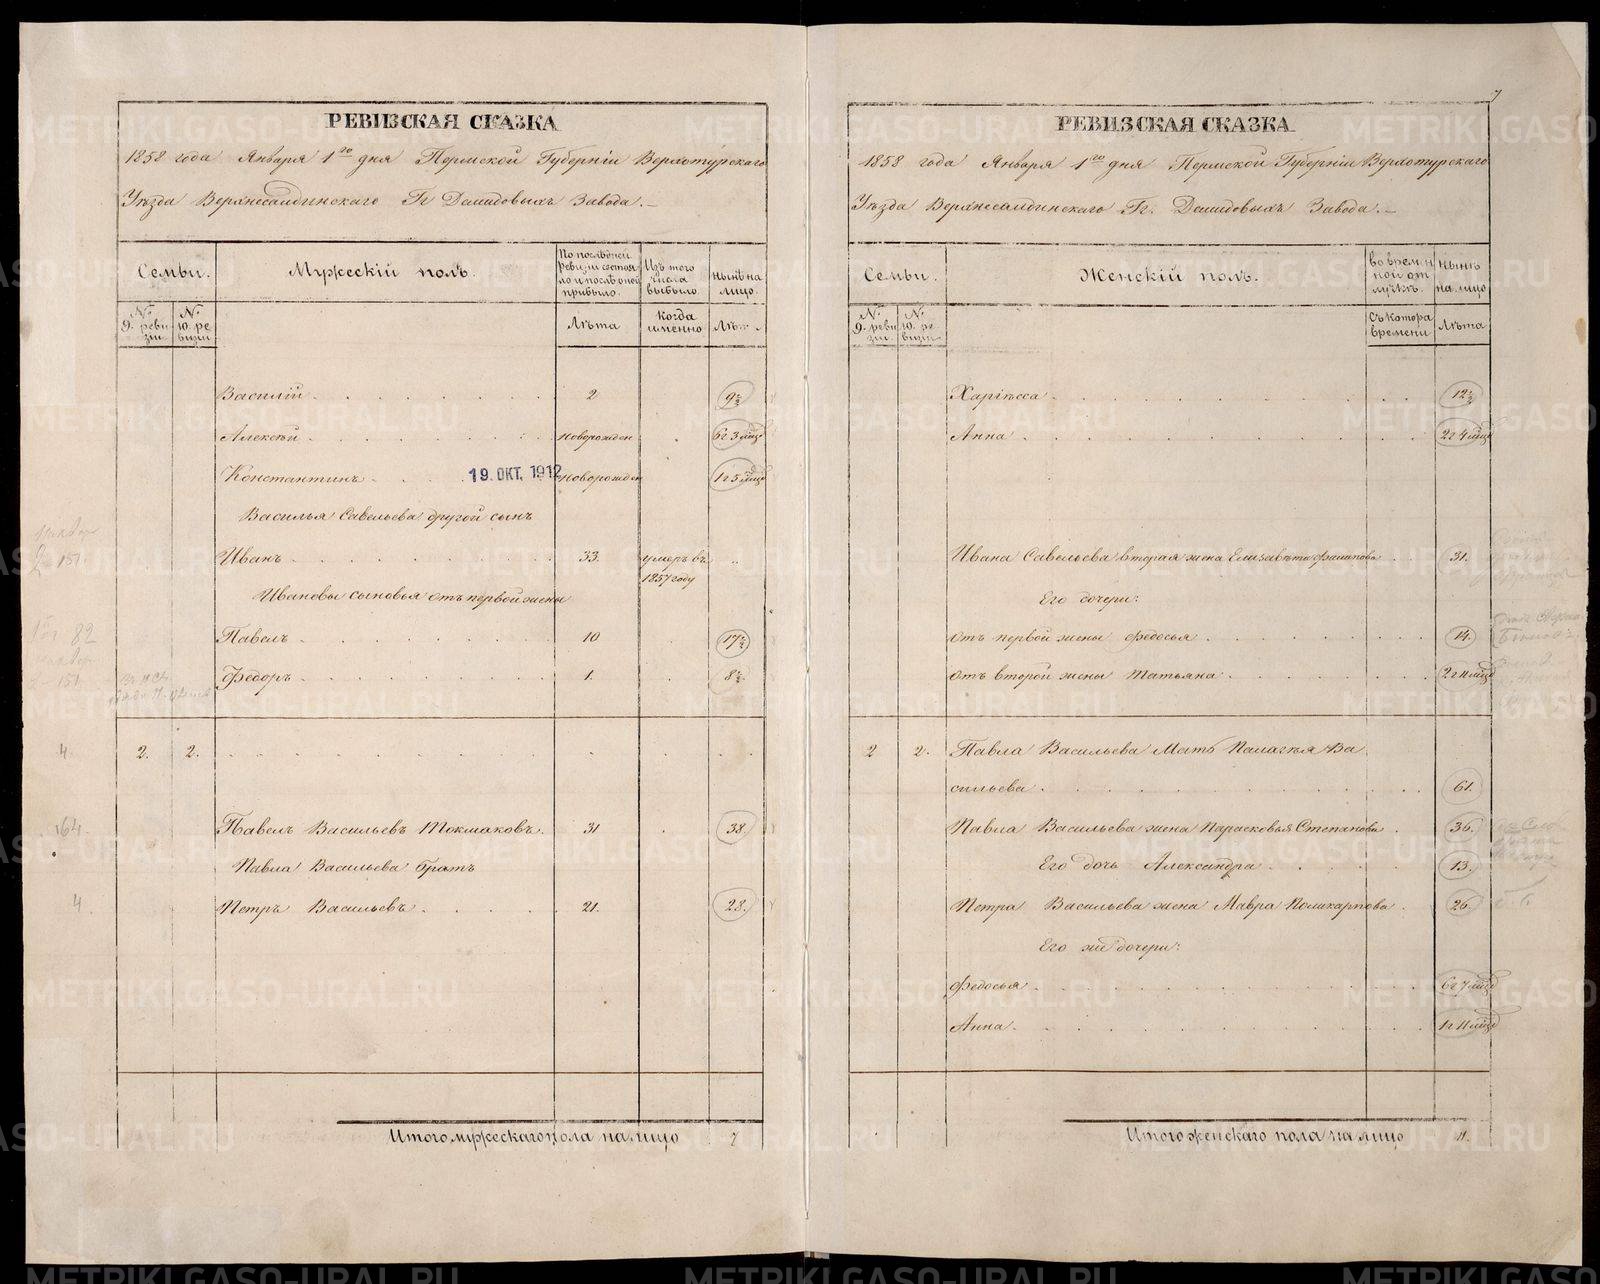 7
РЕВИЗСКАЯ СКАЗКА
1858 года Января 1го дня Пермской Губерніи Верхотурскаго
Уѣзда Верхнесалдинскаго Гг Демидовыхъ Завода.
Семьи.
Мужескій полъ.
По послѣдней ревизіи состояло и послѣ оной прибыло.
Изъ того числа выбыло.
нынѣ на лицо.
№ 9. ревизіи
№ 10. ревизіи
Лѣта
Когда именно
Лѣт
Василій 2 9½
Алексѣй новорожден 6г 3 мѣц
Константинъ 19. ОКТ. 1912 новорожден 1г 5 мѣц
Василья Савельева другой сынъ
2 151
Иванъ 33. умеръ въ 1857 году
Ивановы сыновья отъ первой жены
82
Павелъ 10 17½
151
Федоръ 1. 8½
4 2. 2.
164
Павелъ Васильевъ Токмаковъ. 31 38.
Павла Васильева братъ
4.
Петръ Васильевъ 21. 28.
Итого мужескаго пола на лицо 7
РЕВИЗСКАЯ СКАЗКА
1858 года Января 1го дня Пермской Губерніи Верхотурскаго
Уѣзда Верхнесалдинскаго Гг. Демидовыхъ Завода.
Семьи.
Женскій полъ.
во временной отлучкѣ.
Нынѣ на лицо
№ 9. ревизіи
№ 10. ревизіи
Съ котора времени
Лѣта
Харіѣсса 12½
Анна 2г 4 мѣц
Ивана Савельева вторая жена Елизавѣта Филипова 31.
Его дочери:
отъ первой жены Федосья 14.
отъ второй жены Татьяна 2г 11 мѣц
2 2. Павла Васильева Мать Палагѣя Ва
сильева 61.
Павла Васильева жена Парасковья Степанова 36.
Его дочь Александра 13.
Петра Васильева жена Мавра Поликарпова 26.
Его же дочери:
Федосья 6г 7 мѣц
Анна 1г 11 мѣц
Итого женскаго пола на лицо 11.
METRIKI.GASO-URAL.RU